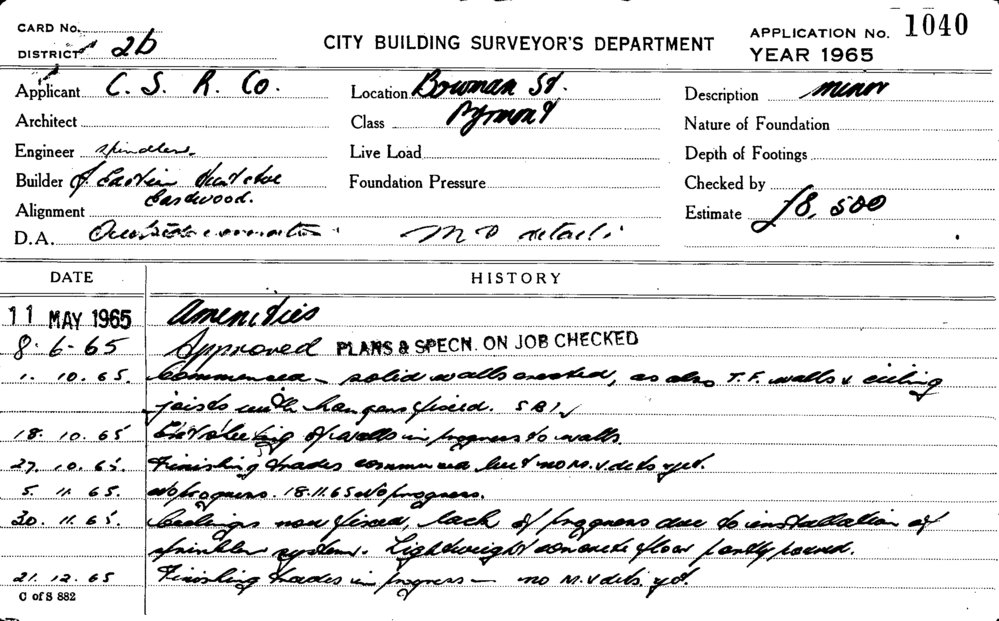 CARD No.
DISTRICT 2b
CITY BUILDING SURVEYOR'S DEPARTMENT
APPLICATION No. 1040
YEAR 1965
Applicant C. S. R. Co.
Location Bowman St.
Description minor
Architect
Class Pyrmont
Nature of Foundation
Engineer
Live Load
Depth of Footings
Builder Eastwood.
Foundation Pressure
Checked by
Alignment
Estimate £8,500
D.A. M V details
DATE HISTORY
11 MAY 1965 Amenities
8.6-65 Approved PLANS & SPECN. ON JOB CHECKED
1. 10. 65. Commenced - solid walls erected, as also T.F. walls & ceiling
joists with hangers fixed.
18. 10. 65 of walls in progress to walls.
27. 10. 65. Finishing trades commenced but no M.V dets yet.
5. 11. 65. No progress. 18.11.65 No progress.
30. 11. 65. Ceilings now fixed, lack of progress due to installation of
sprinkler system. Lightweight concrete floor partly poured.
21. 12. 65 Finishing trades in progress - no M.V dets. yet.
C of S 882